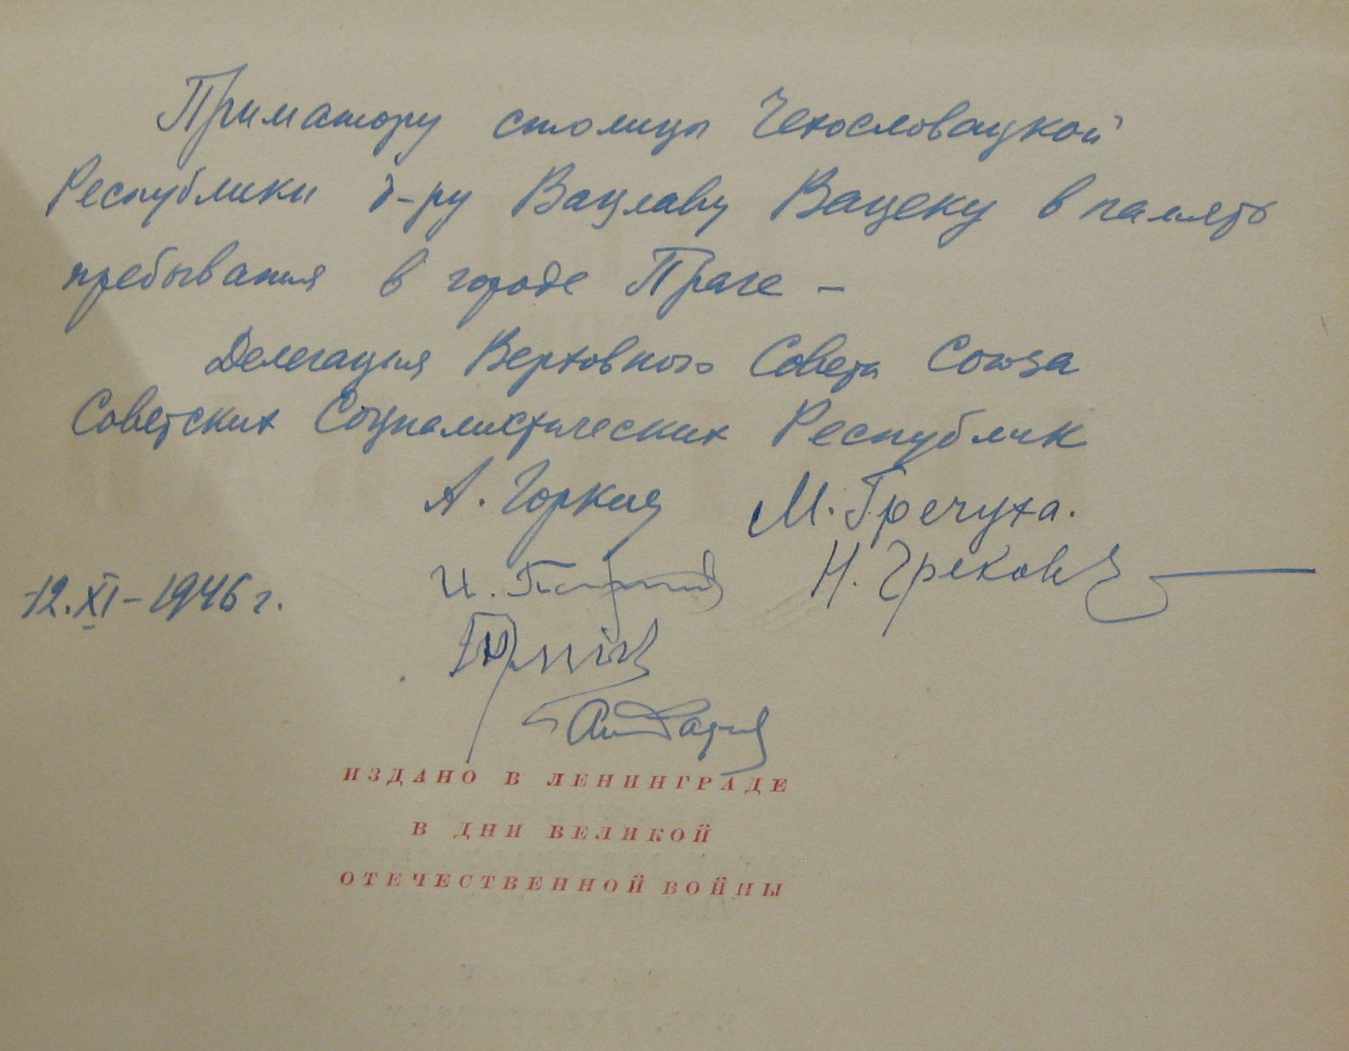 Приматору столицы Чехословацкой
Республики д-ру Вацлаву Вацеку в память
пребывания в городе Праге –
Делегация Верховного Совета Союза
Советских Социалистических Республик
А. Горкин М. Гречуха.
12.XI–1946 г. И. Н. Греков
ИЗДАНО В ЛЕНИНГРАДЕ
В ДНИ ВЕЛИКОЙ
ОТЕЧЕСТВЕННОЙ ВОЙНЫ